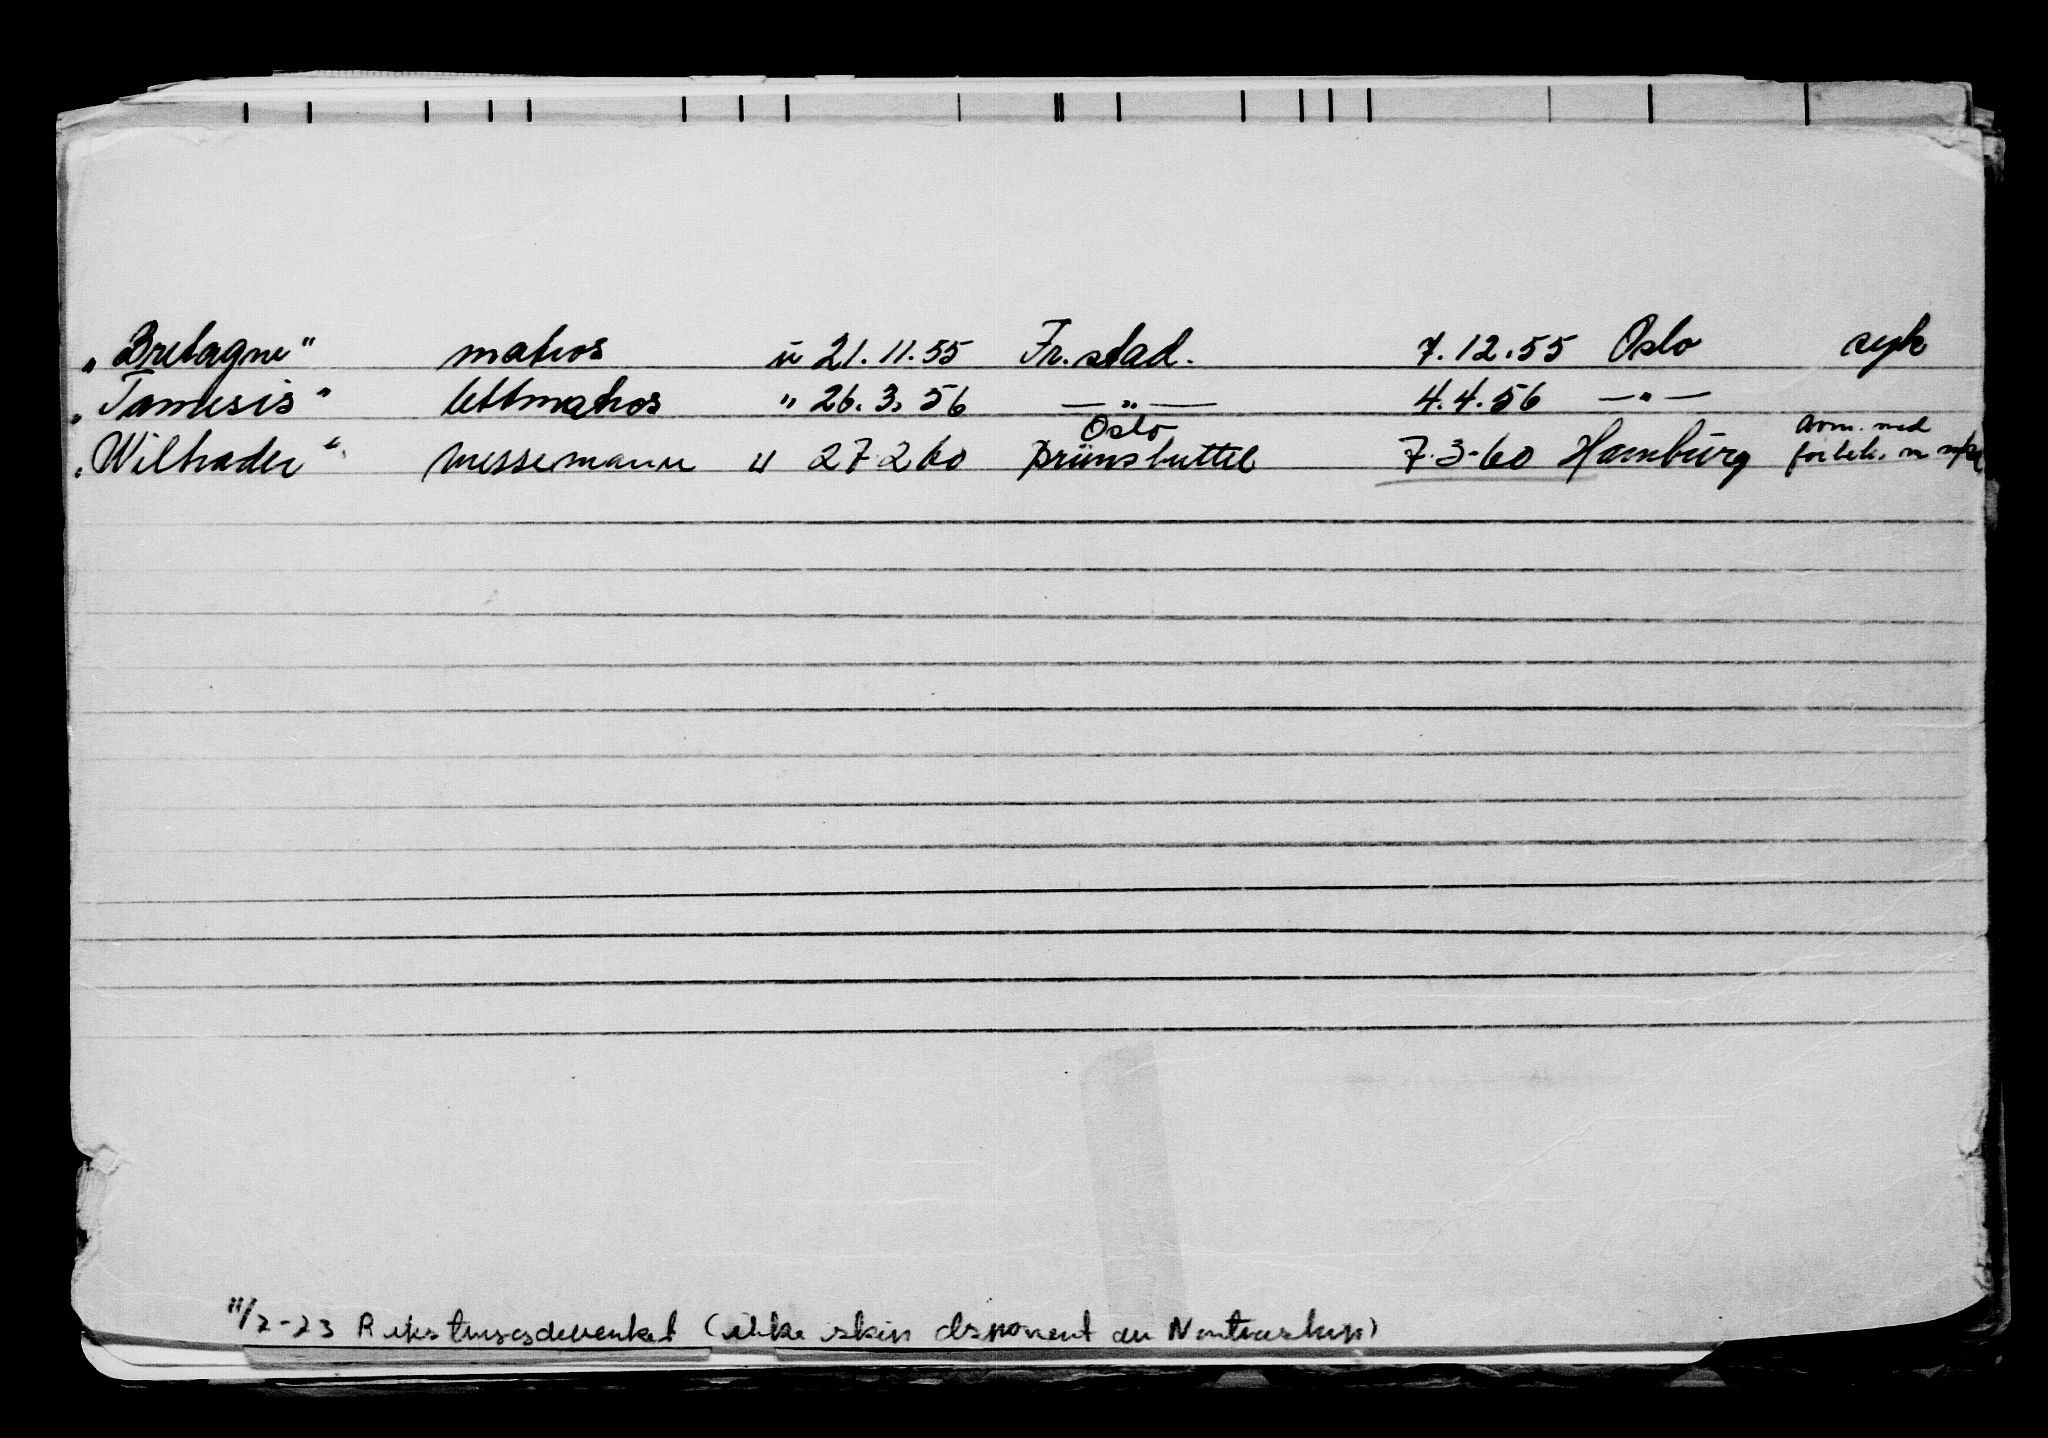 „Bretagne" matros u 21.11.55 Fr.stad. 7.12.55 Oslo syk
„Tamesis" lettmatros " 26.3.56 —"— 4.4.56 —"—
Oslo
„Wiltrader" messemann u 27 2 60 Brünsbuttel 7-3-60 Hamburg avm. med
11/2-23 (ikke skip disponent av Nortraship)